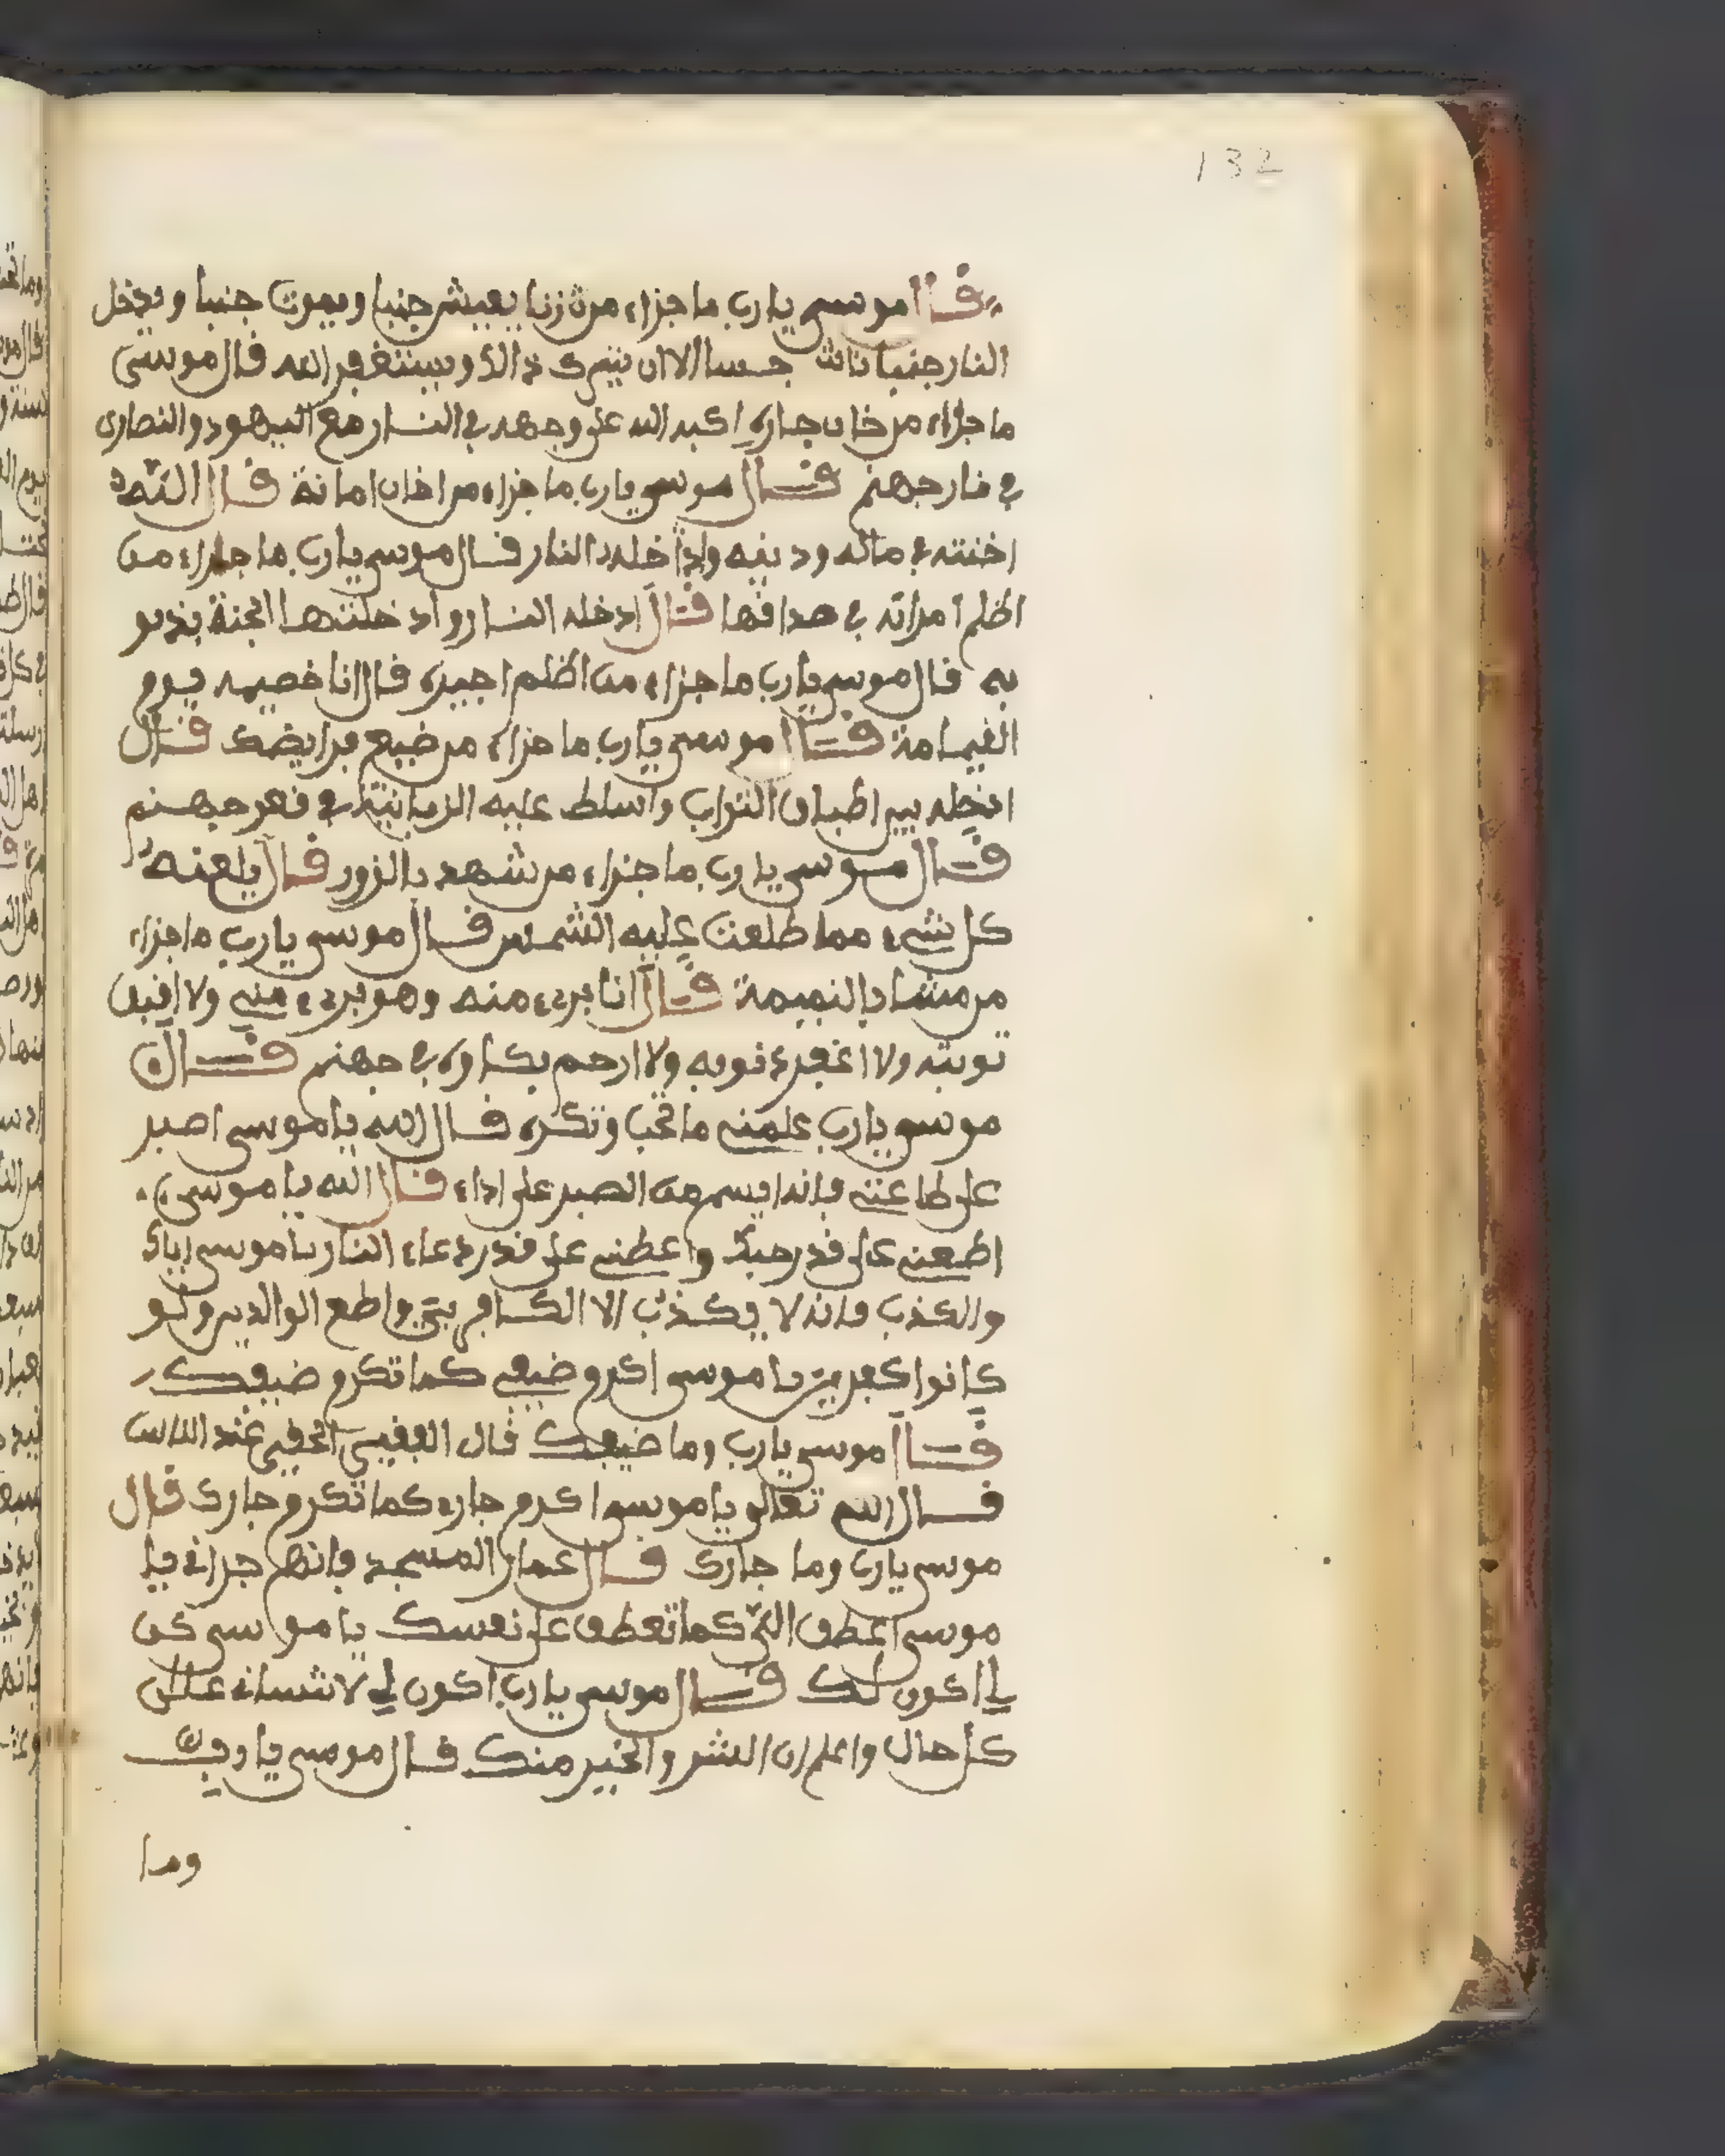 132
قال موسى يارب ما جزاء من زنا يعيش جنبا ويموت جنبا ويدخل
النار جنبا الا ان يترك ذالك ويستغفر الله قال موسى
ما جزاء من خان جاره اكبه الله على وجهه في النار مع اليهود والنصارى
في نار جهنم قال موسى يارب ما جزاء من اخان امانة قال الله
اخنته في ماله ودينه واذا خله النار قال موسى يارب ما جزاء من
اظلم امراته في صداقها قال ادخله النار وادخلتها الجنة
به قال موسى يارب ما جزاء من اظلم اجيره قال انا خصيمه يوم
القيامة قال موسى يارب ما جزاء من ضيع فرايضك قال
ادخله بين اطباق التراب واسلط عليه الزبانية في قعر جهنم
قال موسى يارب ما جزاء من شهد بالزور قال يلعنه
كل شيء مما طلعت عليه الشمس قال موسى يارب ما جزاء
من مشا بالنميمة قال انا بريء منه وهو بريء مني ولا اقبل
توبته ولا اغفر ذنوبه ولا ارحم بكاوه في جهنم قال
موسى يارب علمني ما تحب وتكره قال الله يا موسى اصبر
على طاعتي فانه ايسر من الصبر على اداء قال الله يا موسى
اطعني على قدر حبك واعطني على قدر دعاء النار يا موسى اياك
والكذب فانه لا يكذب الا الكافر بي واطع الوالدين ولو
كانوا كفرين يا موسى اكرم ضيفي كما تكرم ضيفك
قال موسى يارب وما ضيفك قال الفقير الحقير عند الناس
قال الله تعالى يا موسى اكرم جاره كما تكرم جارك قال
موسى يارب وما جارك قال عمار المسجد فانهم جرانه يا
موسى اعطف الي كما تعطف على نفسك يا موسى كن
لي اكون لك قال موسى يارب اكون لي لا تنسانه على
كل حال واعلم ان الشر والخير منك قال موسى يارب
وما